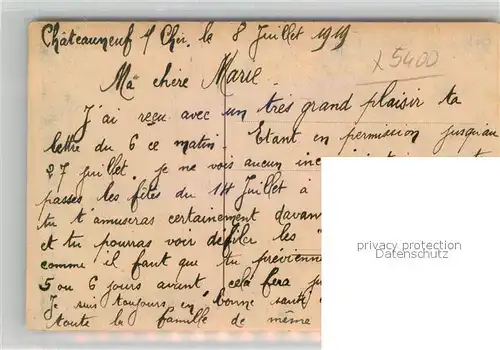 Châteauneuf s/ Cher, le 8 Juillet 1919
x5400
Ma chère Marie
J'ai reçu avec un très grand plaisir ta
lettre du 6 ce matin. Etant en permission jusqu'au
27 juillet, je ne vois aucun inc
passes les fêtes du 14 Juillet à
tu t'amuseras certainement davan
et tu pourras voir défiler les "
privacy protection
Datenschutz
comme il faut que tu prévienn
5 ou 6 jours avant, cela fera
Je suis toujours en bonne santé
toute la famille de même